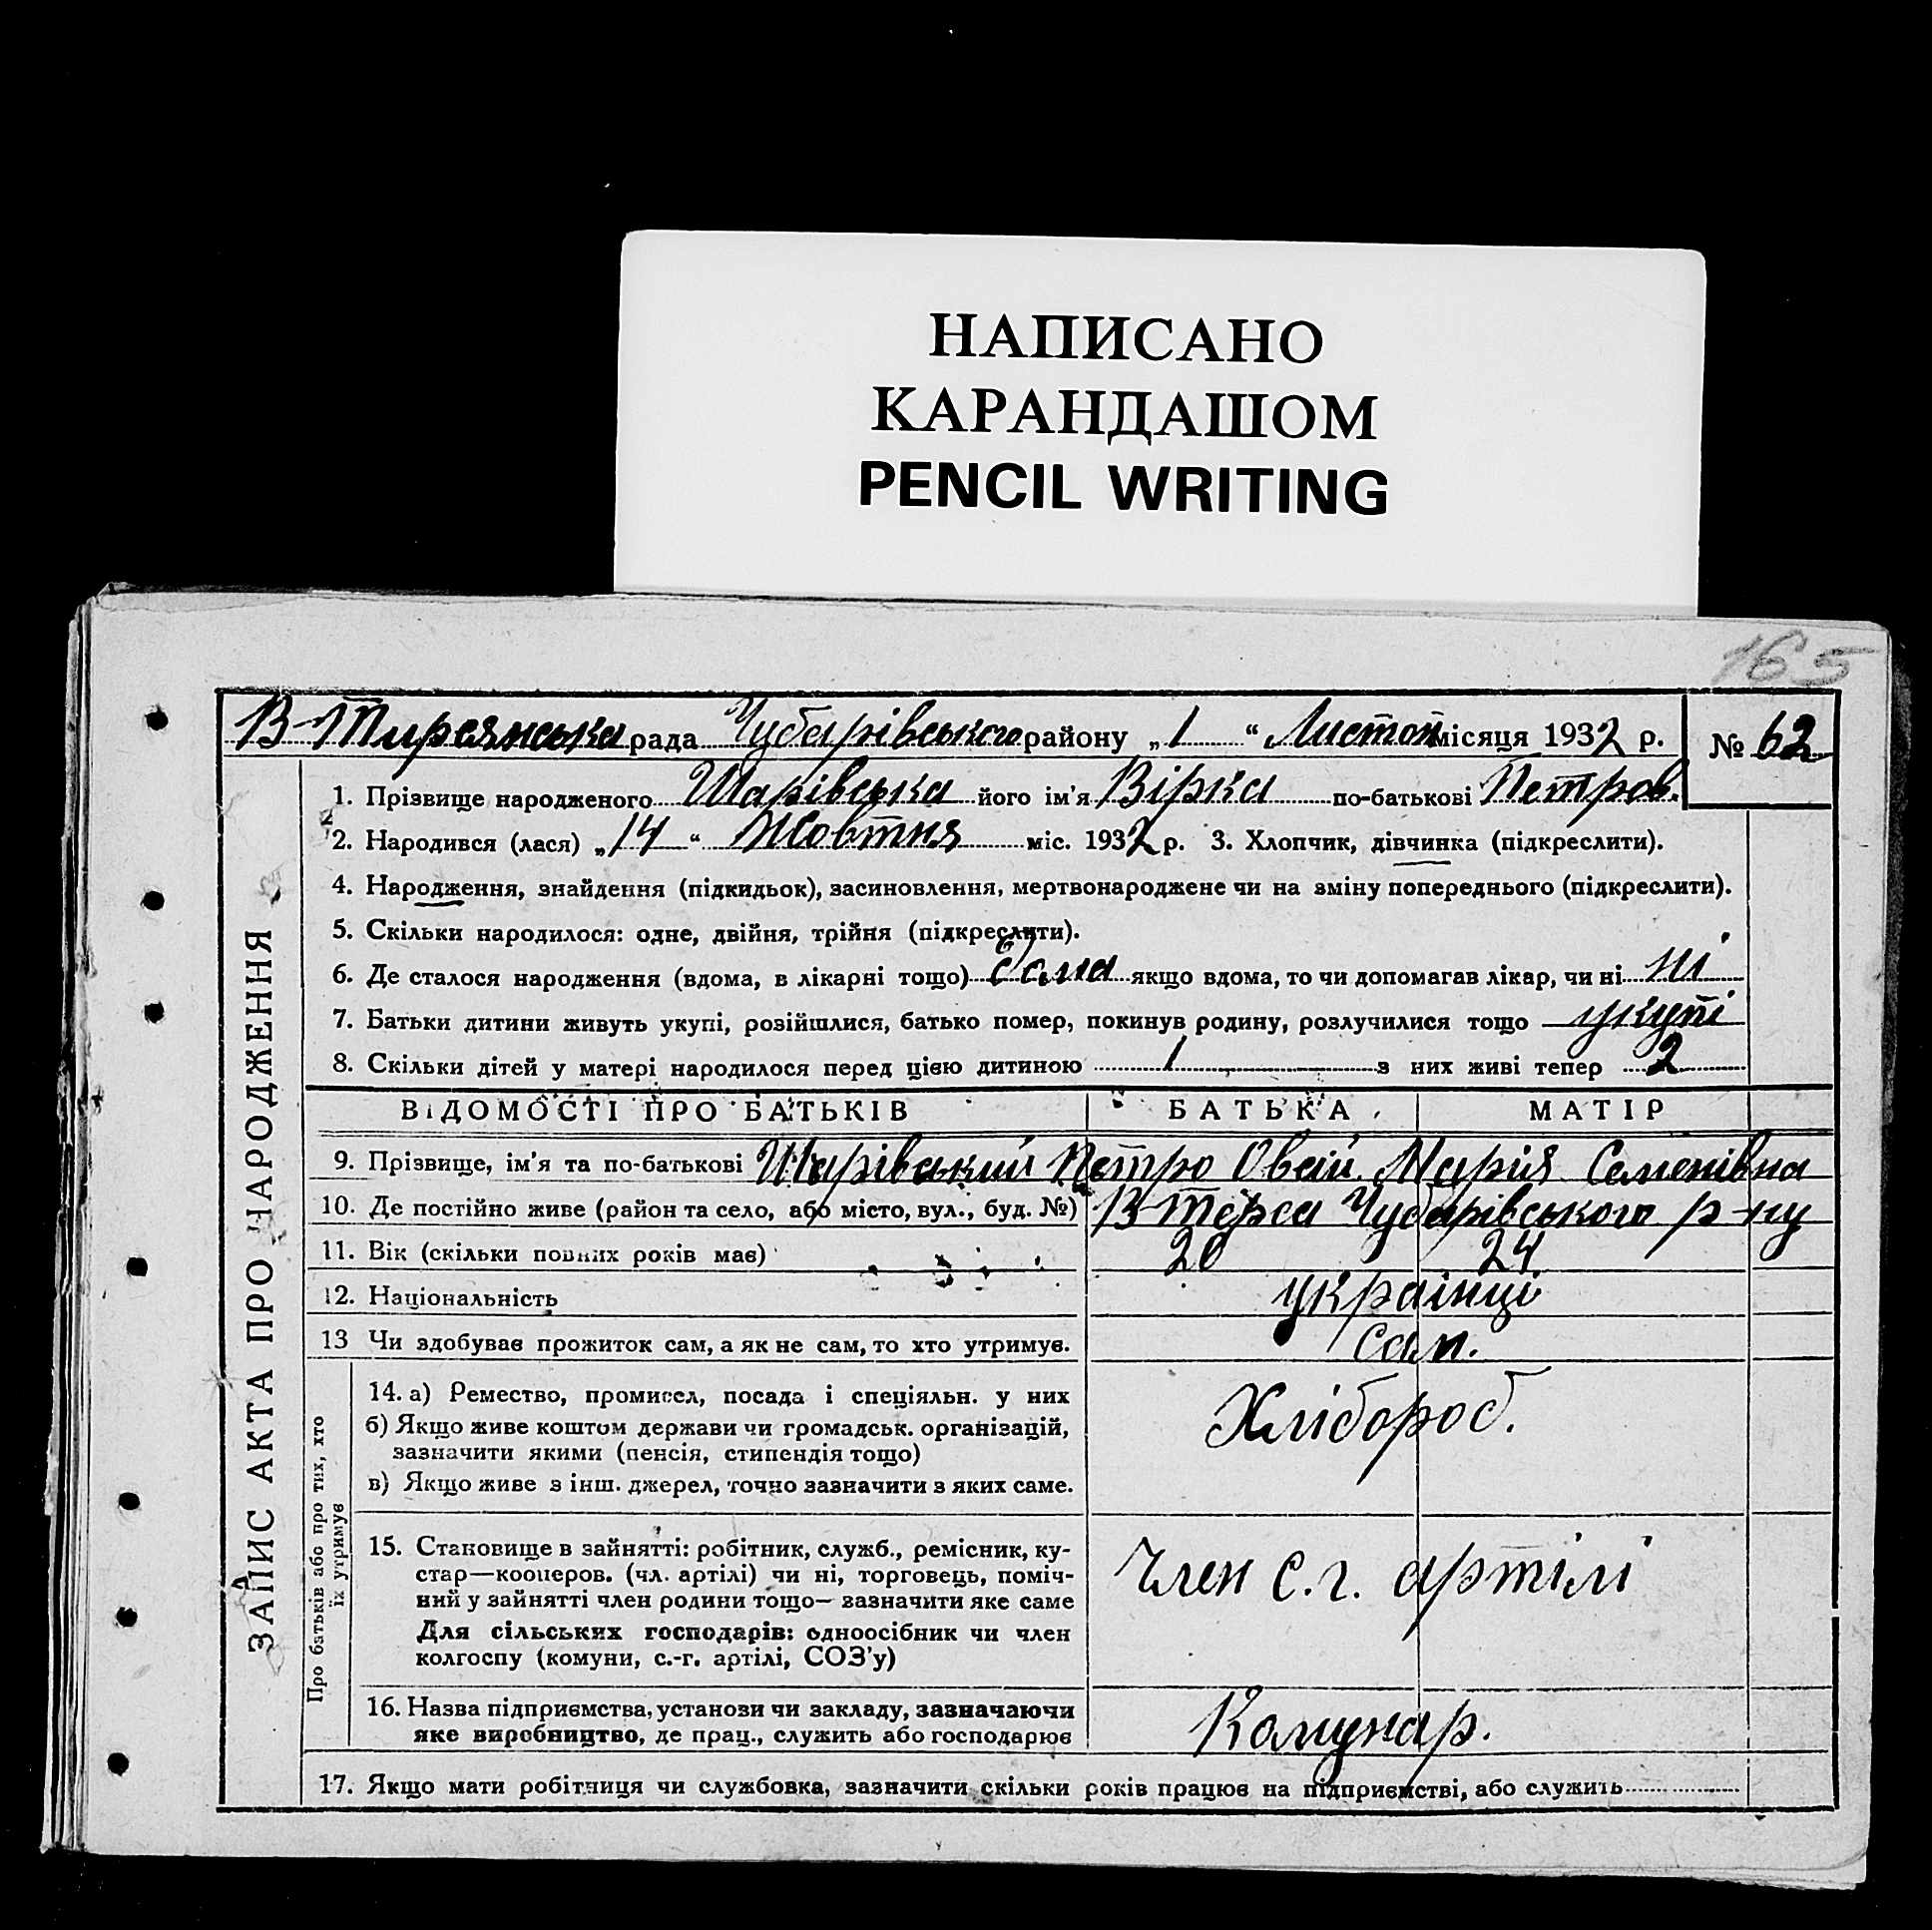 НАПИСАНО
КАРАНДАШОМ
PENCIL WRITING
165
В-Тирсянська рада Чубарівського району „1“ Листоп місяця 1932 р. № 62
1. Прізвище народженого Шарівська його ім'я Вірка по-батькові Петров.
2. Народився (лася) „14“ Жовтня міс. 1932 р. 3. Хлопчик, дівчинка (підкреслити).
4. Народження, знайдення (підкидьок), засиновлення, мертвонароджене чи на зміну попереднього (підкреслити).
5. Скільки народилося: одне, двійня, трійня (підкреслити).
6. Де сталося народження (вдома, в лікарні тощо) якщо вдома, то чи допомагав лікар, чи ні ні
7. Батьки дитини живуть укупі, розійшлися, батько помер, покинув родину, розлучилися тощо укупі
8. Скільки дітей у матері народилося перед цією дитиною 1 з них живі тепер 2
ВІДОМОСТІ ПРО БАТЬКІВ БАТЬКА МАТІР
9. Прізвище, ім'я та по-батькові Шарівський Петро Марія Семенівна
10. Де постійно живе (район та село, або місто, вул., буд. №) В Терса Чубарівського р-ну
11. Вік (скільки повних років має) 20 24
12. Національність українці
13 Чи здобуває прожиток сам, а як не сам, то хто утримує. сам.
14. а) Ремество, промисел, посада і спеціяльн. у них Хлібороб.
б) Якщо живе коштом держави чи громадськ. організацій,
зазначити якими (пенсія, стипендія тощо)
в) Якщо живе з інш. джерел, точно зазначити з яких саме.
15. Становище в зайнятті: робітник, служб., ремісник, ку-
стар—кооперов. (чл. артілі) чи ні, торговець, поміч-
ний у зайнятті член родини тощо— зазначити яке саме
Член с.г. артілі
Для сільських господарів: одноосібник чи член
колгоспу (комуни, с.-г. артілі, СОЗ'у)
16. Назва підприємства, установи чи закладу, зазначаючи
яке виробництво, де прац., служить або господарює Комунар.
17. Якщо мати робітниця чи службовка, зазначити скільки років працює на підприємстві, або служить
ЗАПИС АКТА ПРО НАРОДЖЕННЯ
Про батьків або про тих, хто
їх утримує